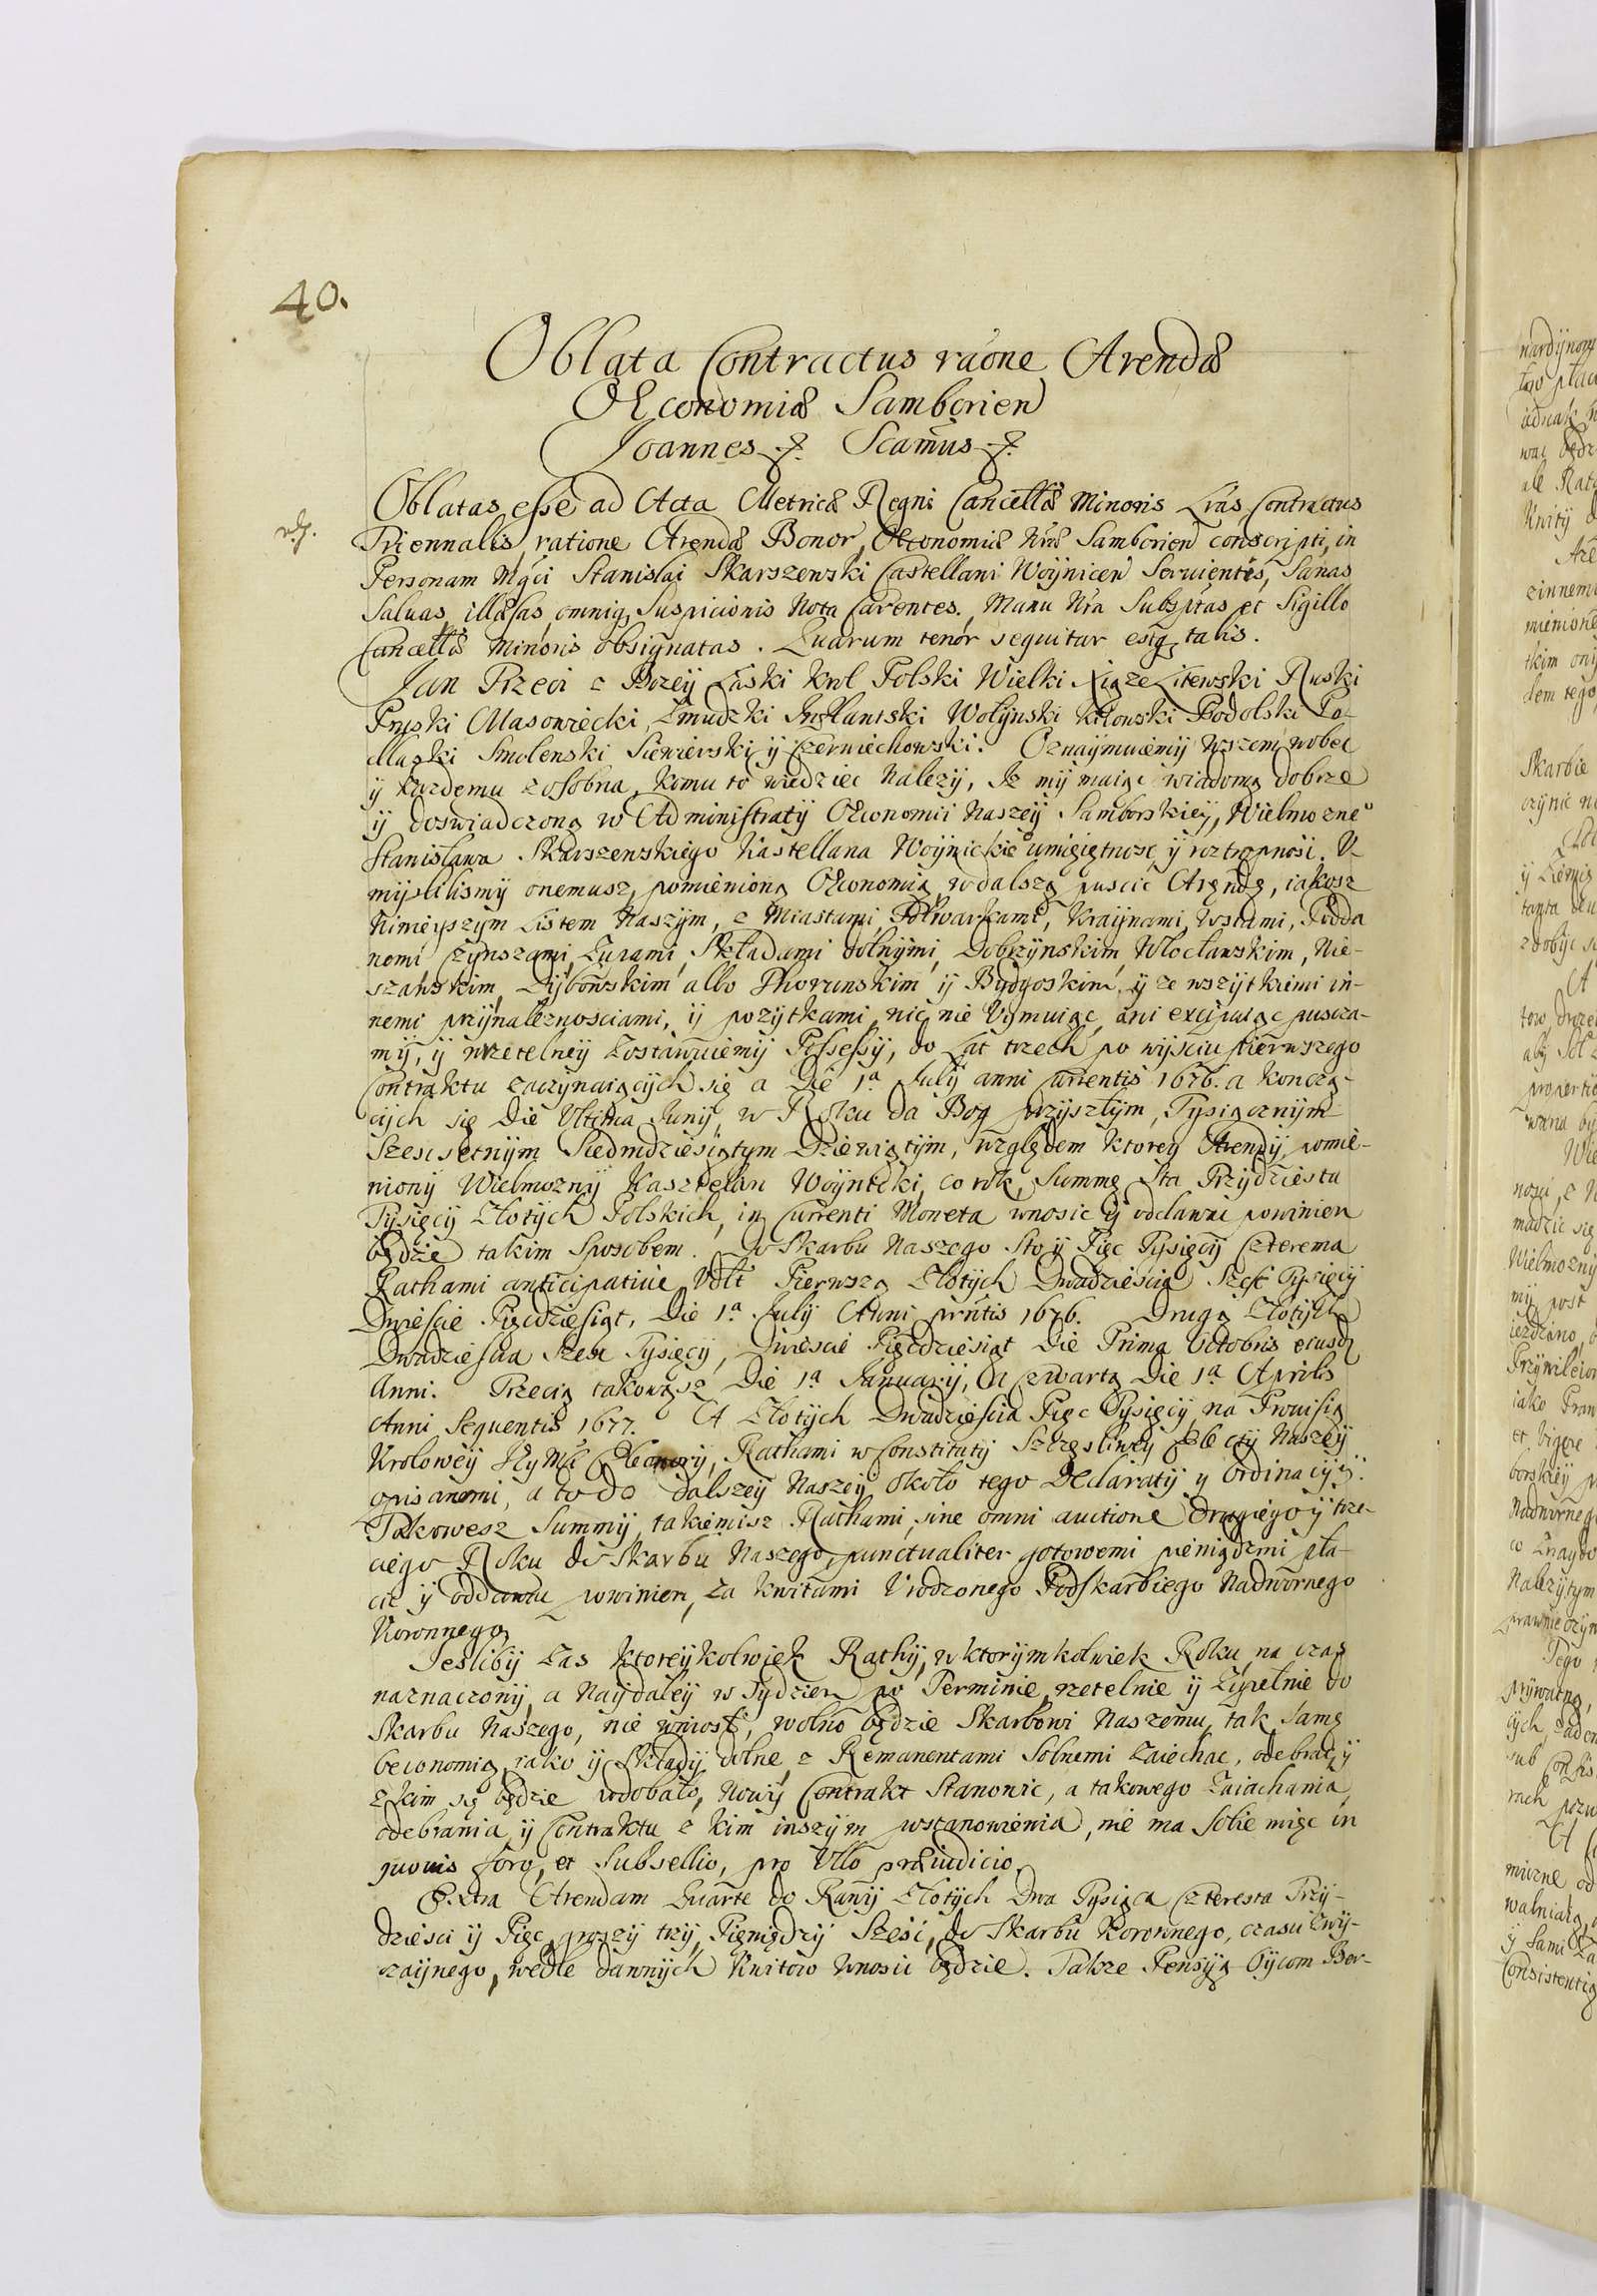 40.
Oblata Contractus raōne Arendæ
Œconomiæ Samborien
Joannes etc. Scam̄us etc.
Oblatas esse ad Acta Metricæ Regni Cancellæ Minoris Lrās Contractus
Triennalis, ratione Arendæ Bonor, Œconomiæ Nrāe Samborien conscripti, in
Personam Mgci Stanislai Skarszewski Castellani Woÿnicen Seruientes, Sanas
Saluas, illæsas, omniq, Suspicionis Nota Carentes. Manu Nrā Subsptas et Sigillo
Cancellæ Minoris obsignatas. Quarum tenor sequitur estq talis.
Jan Trzeci z Bozeÿ Łaski Krol Polski Wielki Xiąze Litewski Ruski
Pruski Masowiecki Zmudzki Inflantski Wolÿnski Kiiowski Podolski Po-
dlaski Smolenski Siewierski ÿ Czerniechowski. Oznaÿmuiemÿ wszem wobec
ÿ kazdemu zosobna, komu to wiedziec nalezÿ, Iz mÿ maiąc wiadomą dobrze
ÿ doswiadczoną w Administratÿ Œconomii Naszeÿ Samborskieÿ, Wielmozneº
Stanisława Skarszewskiego Kastellana Woÿnickieº umieiętnosc ÿ roztropnosc. V-
mÿslilismÿ onemusz, pomienioną Œconomią w dalszą puscic Arendę, iakosz
Ninieÿszÿm Listem Naszÿm, z Miastami, Folwarkami, Kraÿnami, wsiami, Podda
nemi Czÿnszami, Zupami, Składami solnÿmi, Dobrzÿnskim, Włocławskim, Nie-
szawskim, Dÿbowskim albo Thorunskim ÿ Bÿdgoskim, ÿ ze wszÿtkiemi in-
nemi przÿnaleznosciami, ÿ pozÿtkami, nic nie Vÿmuiąc, ani excipuiąc puscza-
mÿ, ÿ wrzetelneÿ zostawuiemÿ Possessÿ, do Lat trzech po wÿsciu pierwszego
Contraktu zaczÿnaiącÿch się a Die 1ª Julÿ anni currentis 1676. a koncza-
cÿch się Die Vltima Junÿ, w Roku da Bog przÿszłÿm, Tÿsiącznÿm
Szescsetnÿm Siedmdziesiątÿm Dziewiątÿm, względem ktoreÿ Arendÿ, pomie-
nionÿ Wielmoznÿ Kasztelan Woÿnicki, co rok, Summę Sta Trzÿdziestu
Tÿsięcÿ Złotÿch Polskich, in Currenti Moneta wnosic ÿ oddawac powinien
będzie takim sposobem. Do Skarbu Naszego Sto ÿ Pięc Tÿsięcÿ Czterema
Rathami anticipatiue Vdlt Pierwszą Złotÿch Dwadziescia Szesc Tÿsięcÿ
Dwiescie Pięcdziesiąt, Die 1ª Julÿ Anni prntis 1676. Drugą Złotÿch
Dwadziescia Szesc Tÿsięcÿ, Dwiescie Pięcdziesiąt Die Prima Octobris eiusd
Anni. Trzecią takowąsz Die 1ª Januarÿ, A czwartą Die 1ª Aprilis
Anni Sequentis 1677. A Złotÿch Dwadziescia Pięc Tÿsięcÿ na Prouisią
Kroloweÿ Jeÿ Mci Eleonorÿ, Rathami w Constitutÿ Szczęsliweÿ Elecÿ Naszeÿ
opisanemi, a to do dalszeÿ Naszeÿ około tego Declaratÿ y Ordinacÿÿ.
Takowesz Summÿ, takiemisz Rathami, sine omni auctione drugiego ÿ trze-
ciego Roku do Skarbu Naszego, punctualiter gotowemi pieniądzmi pła-
cic ÿ oddawac powinien, za kwitami Vrodzonego Podskarbiego Nadwornego
Koronnego,
Jeslibÿ zas ktoreÿkolwiek Rathÿ, w ktorÿmkolwiek Roku, na czas
naznaczonÿ, a Naÿdaleÿ w Tÿdzien po Terminie, rzetelnie ÿ zupełnie do
Skarbu Naszego, nie wniosł, wolno będzie Skarbowi Naszemu, tak samę
oeconomią, iako ÿ Składÿ solne, z Remanentami Solnemi zaiechac, odebrac, ÿ
z kim się będzie podobało, Nowÿ Contrakt Stanowic, a takowego Zaiachania,
odebrania, ÿ Contraktu z kim inszÿm postanowienia, nie ma sobie miec in
quouis foro, et Subsellio, pro Vllo præiudicio.
Extra Arendam Quartę do Rawÿ Złotÿch Dwa Tÿsiąca Czterysta Trzÿ-
dziesci ÿ Pięc, groszÿ trzÿ, Pieniędzÿ Szesc, do Skarbu Koronnego, czasu zwÿ-
czaÿnego, wedle dawnÿch Kwitow wnosic będzie. Takze Pensÿą Oÿcom Ber-